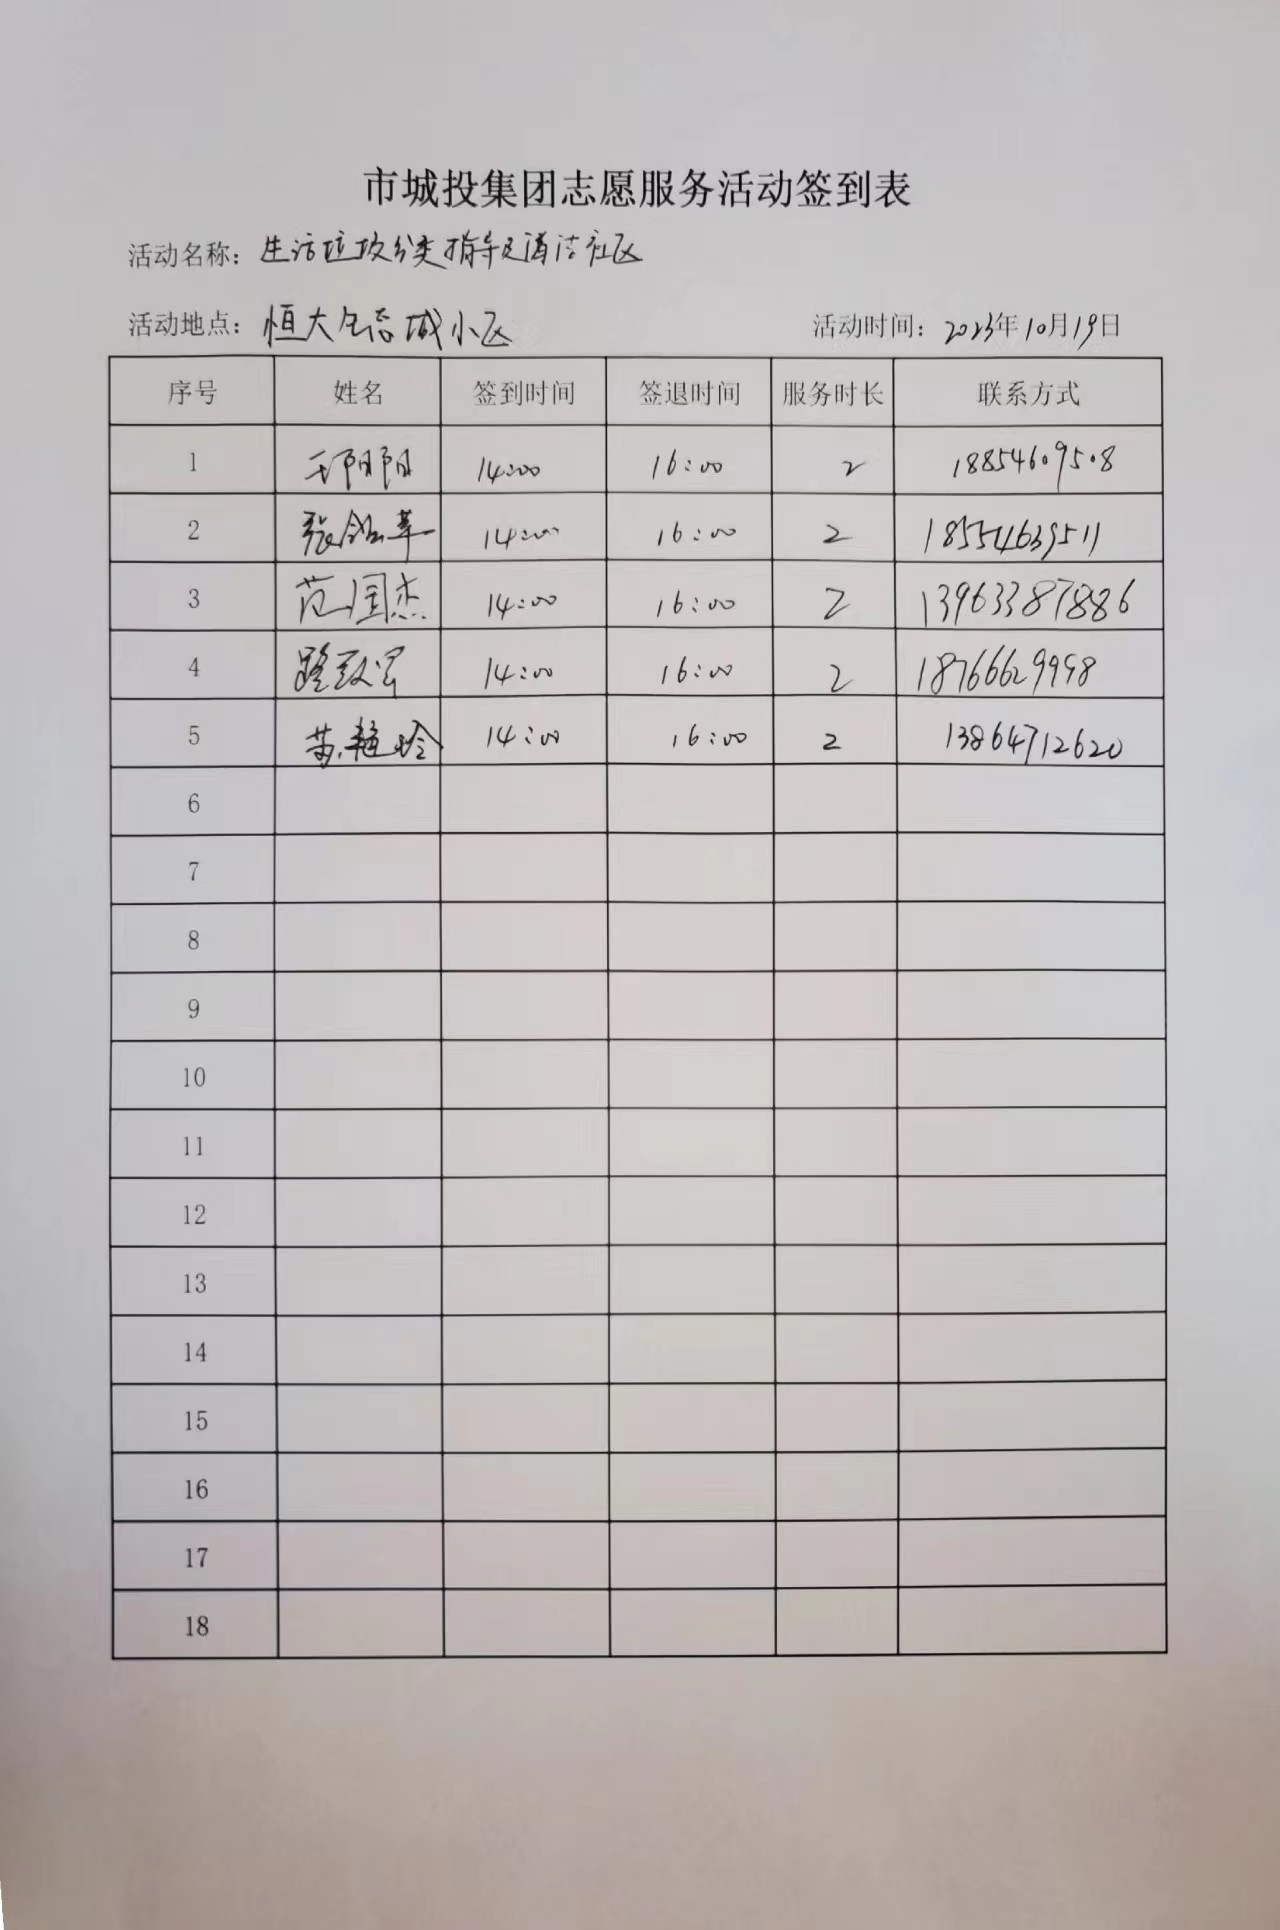 市城投集团志愿服务活动签到表
活动名称：生活垃圾分类指导及清洁社区
活动地点：恒大生态城小区 活动时间：2023年10月19日
序号 姓名 签到时间 签退时间 服务时长 联系方式
1 14:00 16:00 2 18854609508
2 张 14:00 16:00 2 18554639511
3 范国杰 14:00 16:00 2 13963387886
4 路 14:00 16:00 2 18766629998
5 艳玲 14:00 16:00 2 13864712620
6
7
8
9
10
11
12
13
14
15
16
17
18